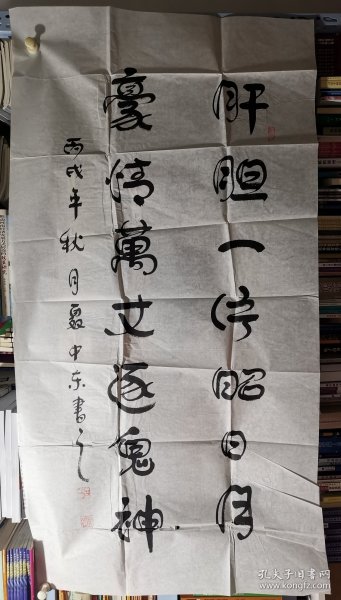 肝胆一片昭日月
豪情萬丈逐鬼神
丙戌年秋月夏中东書之
孔夫子旧书网
www.kongfz.com